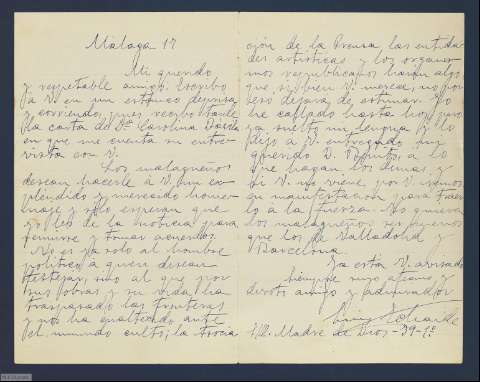 Málaga 17
Mi querido
y respetable amigo: Escribo
á V. en un estanco deprisa
y corriendo, pues recibo tarde
la carta de Dª Carolina
en que me cuenta su entre-
vista con V.
Los malagueños
desean hacerle á V. un es-
pléndido y merecido home-
naje y sólo esperan que
yo les dé la noticia para
reunirse y tomar acuerdos.
No es ya solo al hombre
político á quien desean
festejar, sino al que por
sus obras y su vida, ha
traspasado las fronteras
y nos ha enaltecido ante
el mundo culto; la Asocia
ción de la Prensa, las entida
des artísticas y los organis-
mos republicanos harán algo
que, si bien V. merece, no por
eso dejará de estimar. Yo
he callado hasta hoy, pero
ya suelto mi lengua y lo
dejo á V. entregado, mi
querido D. Benito, á lo
que hagan los demás, y
si V. no viene, por V. iremos
en manifestación para traer
lo á la fuerza. No quieren
los malagueños ser menos
que los de Valladolid y
Barcelona.
Ya está V. avisado
Siempre suyo afmo.
devoto amigo y admirador
S/C. Madre de Dios-39-1º